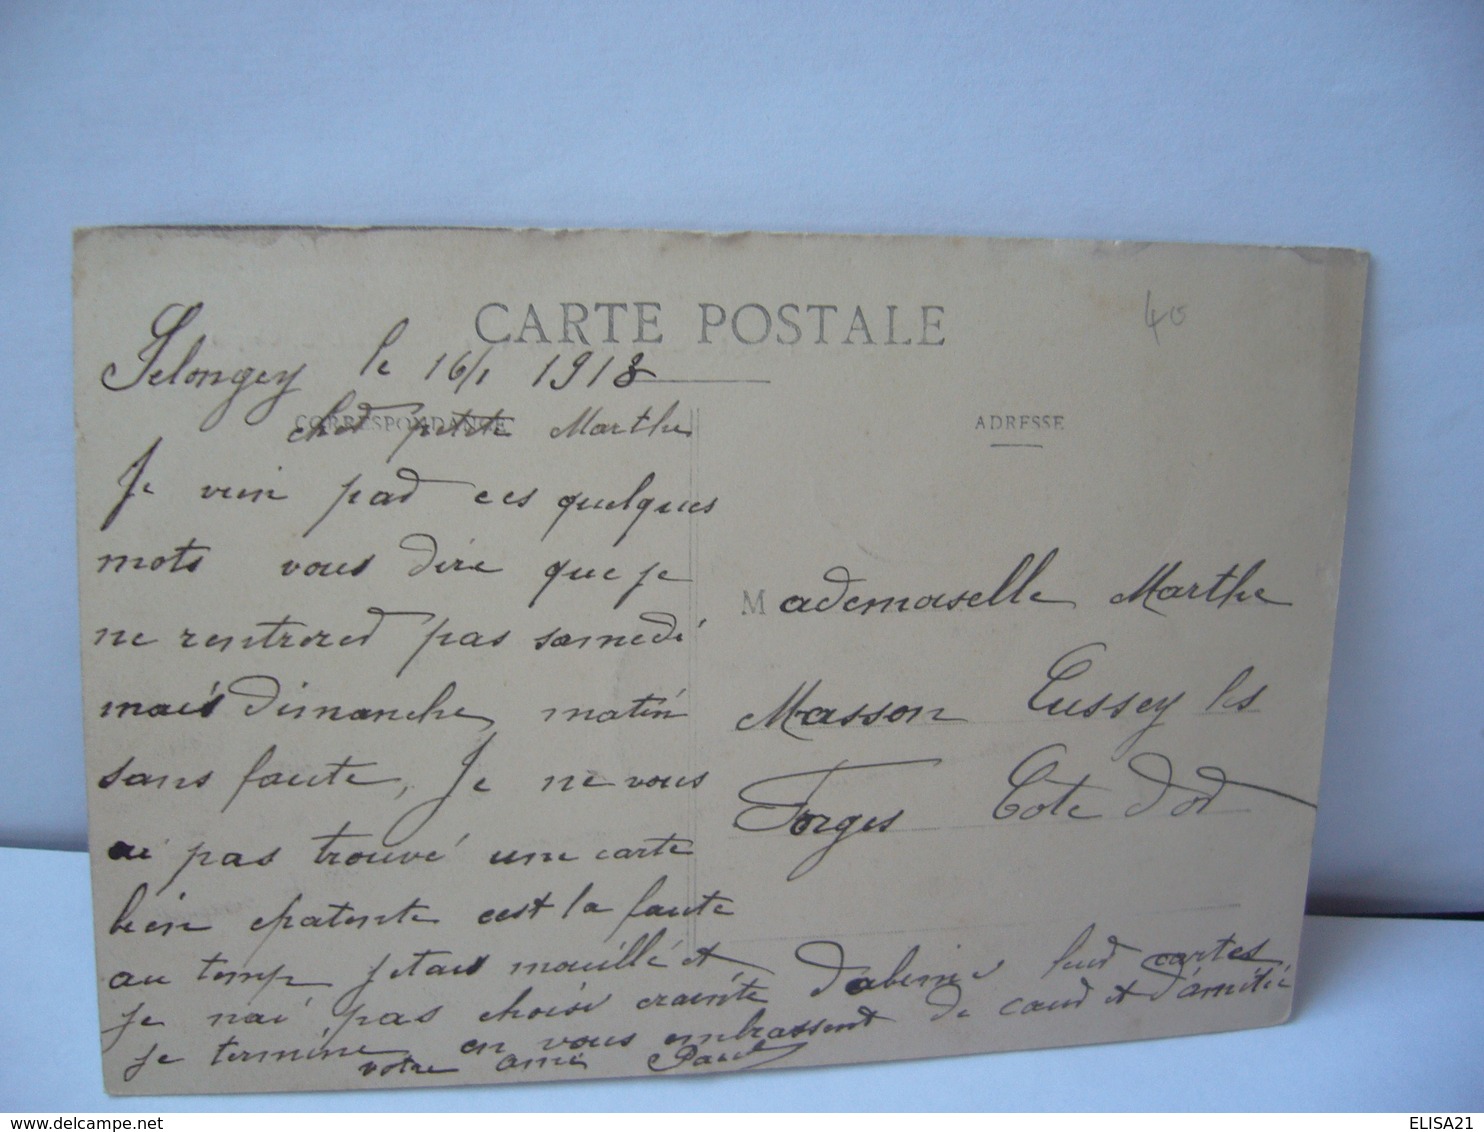 CARTE POSTALE
40
Selongey le 16/1 1918
CORRESPONDANCE
ADRESSE
cher petite Marthe
Je vien par ces quelques
mots vous dire que je
ne rentrerer pas samedi
mais dimanche matin
sans faute, Je ne vous
ai pas trouvé une carte
bien epatente cest la faute
au temp jetais mouillé et
je nai pas choisi crainte d'abimé leur cartes
je termine en vous embrassent de cœur et d'amitié
votre ami Paul
Mademoiselle Marthe
Masson Cussey les
Forges Cote d'or
ELISA21